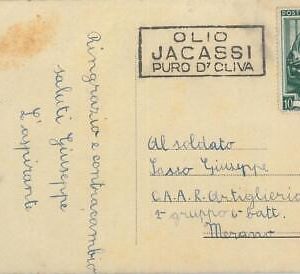 Ringrazio e contracambio
saluti Giuseppe
L'aspirante
OLIO
JACASSI
PURO D'OLIVA
POST
10
Al soldato
Sasso Giuseppe
C.A.A.R. Artiglieria
1º gruppo 6ª batt.
Merano